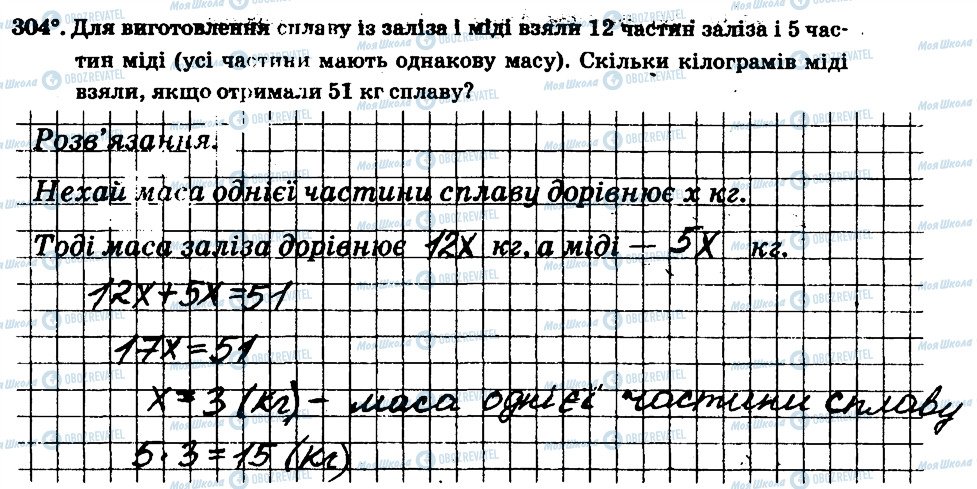 304°. Для виготовлення сплаву із заліза і міді взяли 12 частин заліза і 5 час-
тин міді (усі частини мають однакову масу). Скільки кілограмів міді
взяли, якщо отримали 51 кг сплаву?
Розв'язання.
Нехай маса однієї частини сплаву дорівнює х кг.
Тоді маса заліза дорівнює 12х кг, а міді — 5х кг.
12х+5х=51
17х=51
х=3 (кг) - маса однієї частини сплаву
5·3=15 (кг)